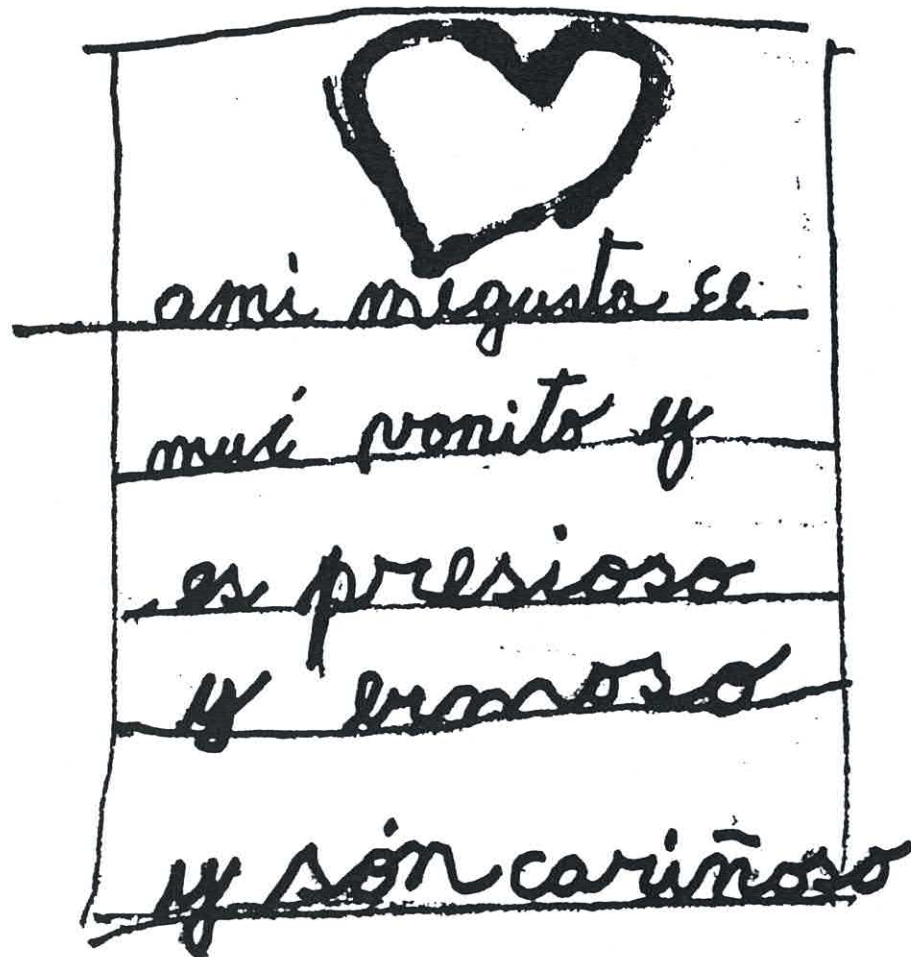 ami megusta el
mui vonito y
es presioso
y ermoso
y són cariñoso